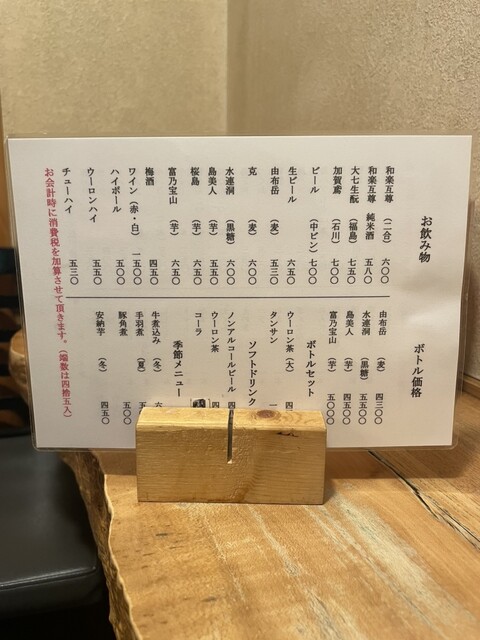 お飲み物
和楽互尊 (二合) 六〇〇
和楽互尊 純米酒 五八〇
大七生酛 (福島) 七五〇
加賀鳶 (石川) 七〇〇
ビール (中ビン) 七〇〇
生ビール 六五〇
由布岳 (麦) 五三〇
克 (麦) 六〇〇
水連洞 (黒糖) 六〇〇
島美人 (芋) 五五〇
桜島 (芋) 六五〇
富乃宝山 (芋) 六五〇
梅酒 四五〇
ワイン (赤・白) 一五〇〇
ハイボール 五〇〇
ウーロンハイ 五五〇
チューハイ 五三〇
お会計時に消費税を加算させて頂きます。(端数は四捨五入)
ボトル価格
由布岳 (麦) 四三〇〇
水連洞 (黒糖) 五五〇〇
島美人 (芋) 四五〇〇
富乃宝山 (芋) 五〇〇〇
ボトルセット
ウーロン茶 (大)
タンサン
ソフトドリンク
ノンアルコールビール
ウーロン茶
コーラ
季節メニュー
牛煮込み (冬)
手羽煮 (夏)
豚角煮 五〇〇
安納芋 (冬) 四五〇